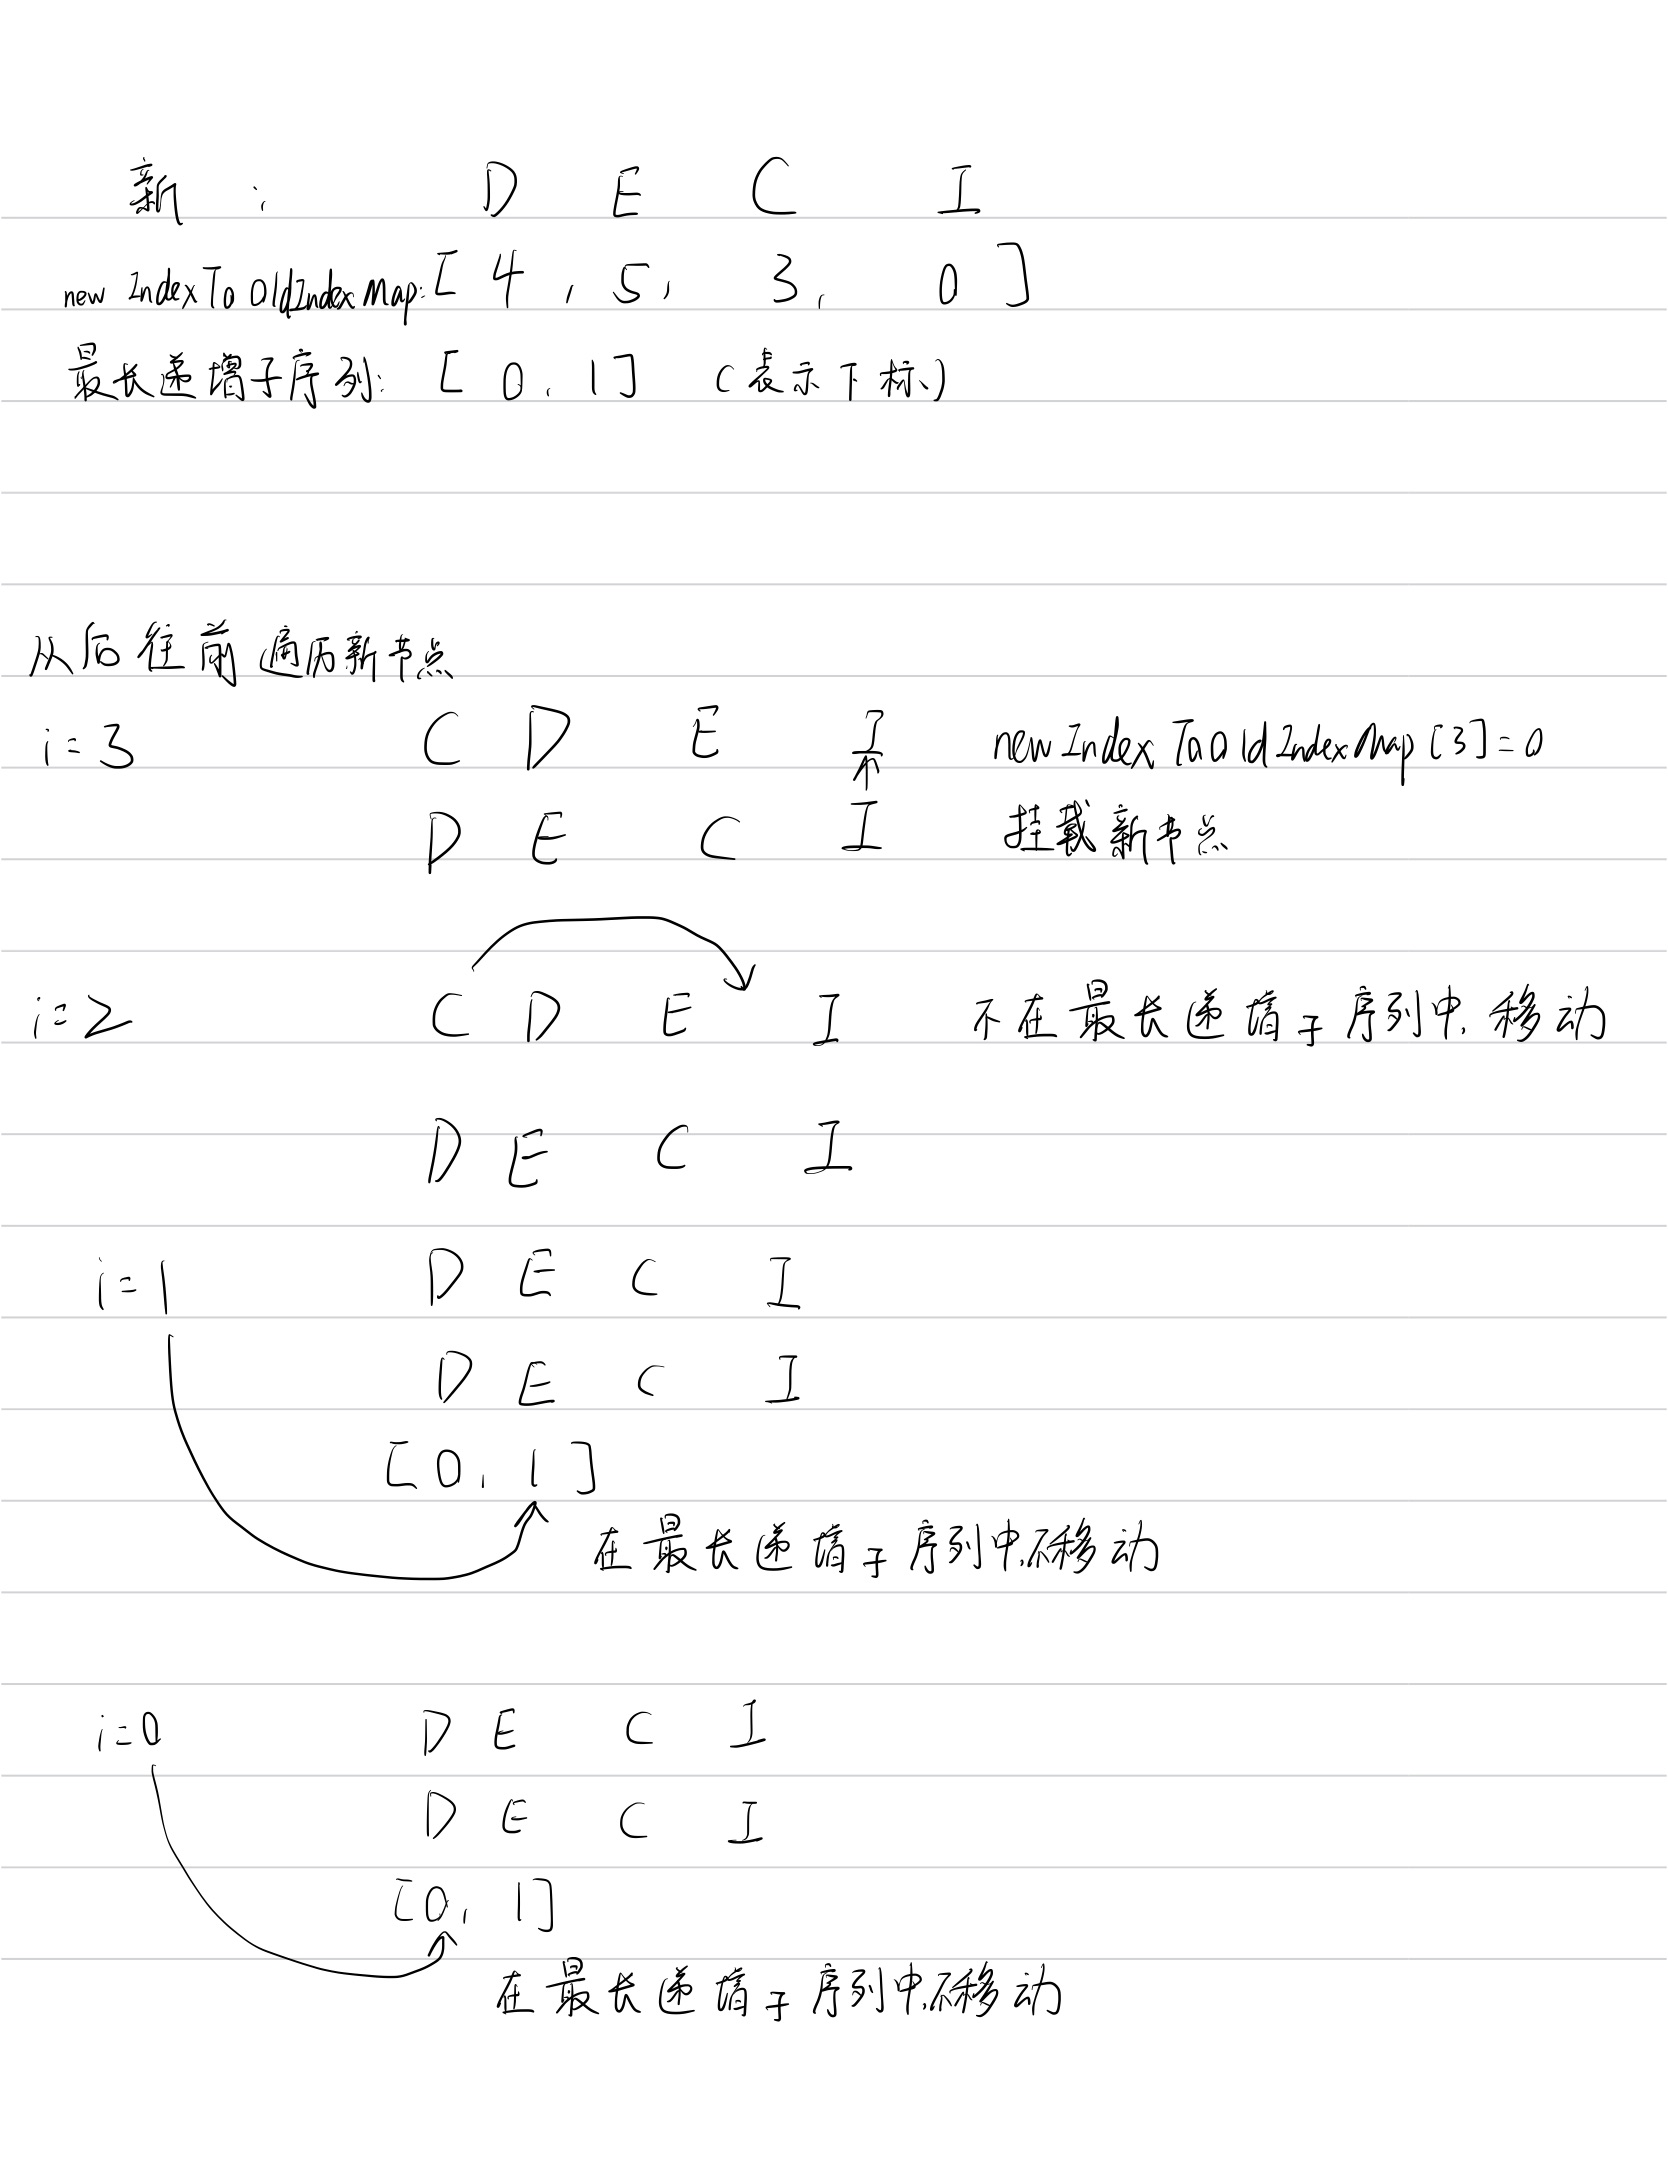 新: D E C I
newIndexToOldIndexMap: [4, 5, 3, 0]
最长递增子序列: [0, 1] (表示下标)
从后往前遍历新节点
i=3 C D E I newIndexToOldIndexMap[3]=0
D E C I 挂载新节点
i=2 C D E I 不在最长递增子序列中,移动
D E C I
i=1 D E C I
D E C I
[0, 1]
在最长递增子序列中,不移动
i=0 D E C I
D E C I
[0, 1]
在最长递增子序列中,不移动